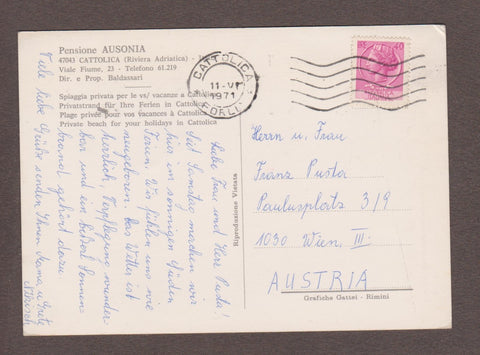 Pensione AUSONIA
47043 CATTOLICA (Riviera Adriatica) -
Viale Fiume, 23 - Telefono 61.219
Dir. e Prop. Baldassari
Spiaggia privata per le vs/ vacanze a Cattolica
Privatstrand für Ihre Ferien in Cattolica
Plage privée pour vos vacances à Cattolica
Private beach for your holidays in Cattolica
CATTOLICA
11-VI
1971
FORLI
Liebe Frau und Herr Pusta!
Seit Samstag machen wir
hier im sonnigen Süden
Ferien. Wir fühlen uns wie
neugeboren. Das Wetter ist
herrlich, Verpflegung wunder-
bar und ein bißerl Sonnen-
brand gehört dazu
Viele liebe Grüße senden Ihnen Mama u. Grete
Riproduzione Vietata
Herrn u. Frau
Franz Pusta
Paulusplatz 3/9
1030 Wien, III.
AUSTRIA
Grafiche Gattei - Rimini